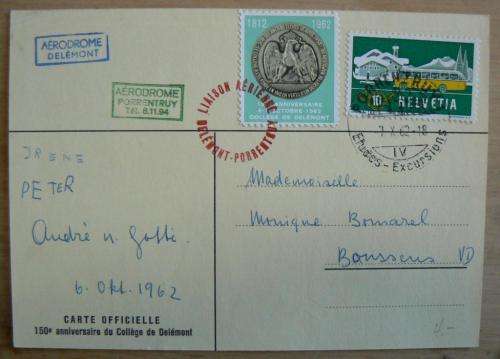 AÉRODROME
DELÉMONT
AÉRODROME
PORRENTRUY
Tél. 6.11.94
1812 1962
COLLÈGE DE DELÉMONT
LIAISON AÉRIENNE
DELÉMONT-PORRENTRUY
10 HELVETIA
PORRENTRUY
7 X 62-18
IV
Etudes - Excursions
IRENE
PETER
André n. Gotti.
6. Okt. 1962
Mademoiselle
Monique
Boussens VD
CARTE OFFICIELLE
150e anniversaire du Collège de Delémont